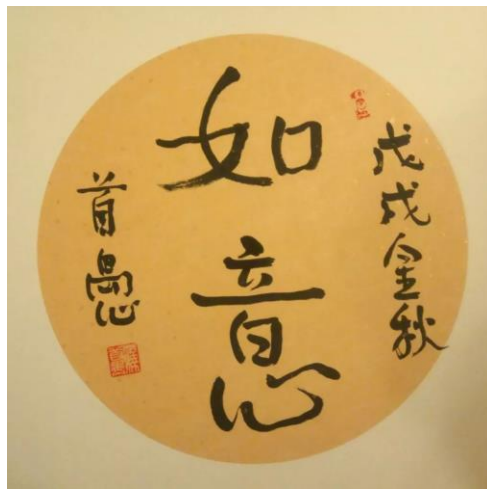 戊戌金秋
如意
首愚